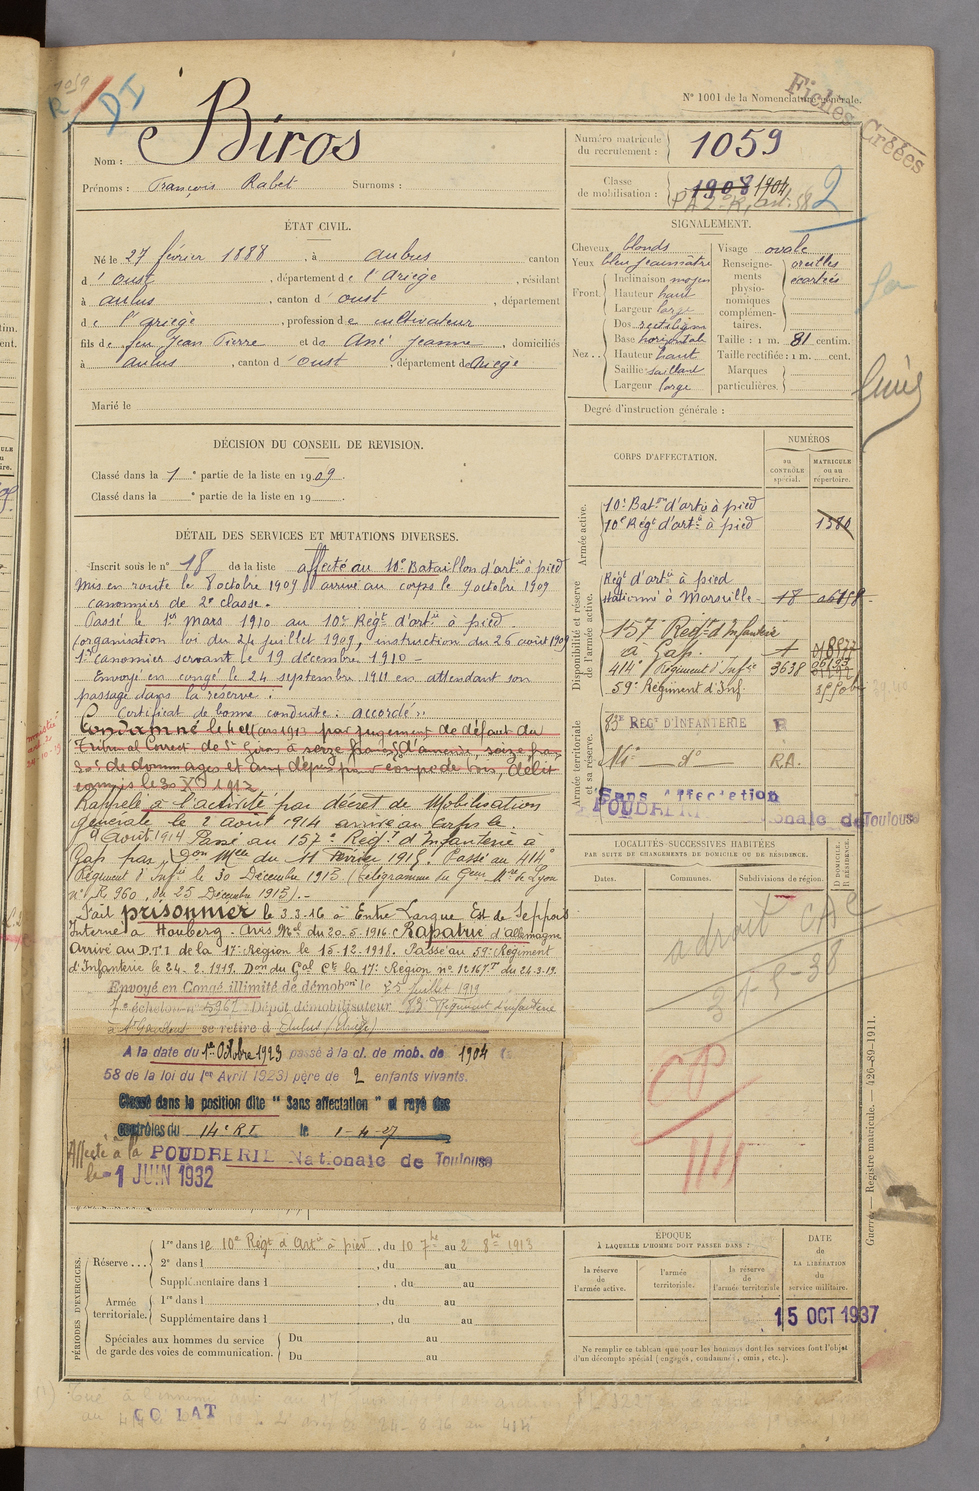 1059
N° 1001 de la Nomenclature générale.
Fiches Créées
Nom : Biros
Prénoms : François Rabet Surnoms :
Numéro matricule du recrutement : 1059
Classe de mobilisation : 1908 1904
2
ÉTAT CIVIL.
Né le 27 février 1888, à aulus canton
d'oust, département de l'Ariège, résidant
à aulus, canton d'oust, département
de l'ariège, profession de cultivateur
fils de feu Jean Pierre et de Ané Jeanne, domiciliés
à aulus, canton d'oust, département de Ariège
Marié le
SIGNALEMENT.
Cheveux blonds
Yeux bleu jaunâtre
Front. Inclinaison moyen
Hauteur haut
Largeur large
Nez.. Dos rectiligne
Base horizontale
Hauteur haut
Saillie saillant
Largeur large
Visage ovale
Renseignements physionomiques complémentaires. oreilles écartées
Taille : 1 m. 81 centim.
Taille rectifiée : 1 m. cent.
Marques particulières.
Degré d'instruction générale :
DÉCISION DU CONSEIL DE REVISION.
Classé dans la 1e partie de la liste en 1909.
Classé dans la e partie de la liste en 19
DÉTAIL DES SERVICES ET MUTATIONS DIVERSES.
Inscrit sous le n° 18 de la liste affecté au 10e Bataillon d'artie à pied
Mis en route le 8 octobre 1909 arrivé au corps le 9 octobre 1909
canonnier de 2e classe.
Passé le 1er Mars 1910 au 10e Régt d'artie à pied.
(organisation loi du 24 juillet 1909, instruction du 26 août 1909
1er canonier servant le 19 décembre 1910 -
Envoyé en congé le 24 septembre 1911 en attendant son
passage dans la réserve.
Certificat de bonne conduite : accordé.
Condamné le 4 Mars 1913 par jugement de défaut du
Tribunal Correct. de St Girons à seize francs d'amende, seize francs
de dommages et aux dépens pour coupe de bois, délit
commis le 30 Xbre 1912
Rappelé à l'activité par décret de Mobilisation
générale le 2 Août 1914 arrivé au Corps le
4 Août 1914 Passé au 157e Régt d'Infanterie à
Gap par Don Mlle du 11 Février 1915. Passé au 414e
Régiment d'Infie le 30 Décembre 1915 (Télégramme du Gen. Mre de Lyon
n° R 960, du 25 Décembre 1915).-
Fait prisonnier le 3.3.16 à Entre Largue Est de Seppois
Interné à Houberg - Avis Mel du 20-5-1916. Rapatrié d'allemagne
Arrivé au D.T.I de la 17e Région le 15-12-1918. Passé au 59e Régiment
d'Infanterie le 24-2-1919. Don du Gal Ct la 17e Région n° 12167 du 24-3-19.
Envoyé en Congé illimité de démobon le 25 Juillet 1919
7e échelon n° 5967 Dépôt démobilisateur 83e Régiment d'infanterie
à St Gaudens se retire à Aulus (Ariège)
A la date du 1er Octobre 1923 passé à la cl. de mob. de 1904 (
58 de la loi du 1er Avril 1923) père de 2 enfants vivants.
Classé dans la position dite "Sans affectation" et rayé des
contrôles du 14e RI le 1-4-27
Affecté à la POUDRERIE Nationale de Toulouse
le -1 JUIN 1932
CORPS D'AFFECTATION.
NUMÉROS
au CONTRÔLE spécial.
MATRICULE ou au répertoire.
Armée active.
10e Baton d'artie à pied
10e Régt d'artie à pied 1380
Disponibilité et réserve de l'armée active.
Régt d'artie à pied
stationné à Marseille 18
157e Régt d'Infanterie
à Gap.
414e Régiment d'Infie 3638
59e Régiment d'Inf.
Armée territoriale et sa réserve.
83E REGt D'INFANTERIE R
14e d° RA.
Sans Affectation
POUDRERIE Nationale de Toulouse
LOCALITÉS SUCCESSIVES HABITÉES
PAR SUITE DE CHANGEMENTS DE DOMICILE OU DE RÉSIDENCE.
Dates. Communes. Subdivisions de région. D. DOMICILE. R. RÉSIDENCE.
a droit CAC
31-5-38
CP
PÉRIODES D'EXERCICES.
Réserve ... 1re dans le 10e Régt d'Artie à pied, du 10 7bre au 2 8bre 1913
2e dans l , du au
Supplémentaire dans l , du au
Armée territoriale. 1re dans l , du au
Supplémentaire dans l , du au
Spéciales aux hommes du service de garde des voies de communication. Du au
Du au
ÉPOQUE
À LAQUELLE L'HOMME DOIT PASSER DANS :
la réserve de l'armée active.
l'armée territoriale.
la réserve de l'armée territoriale
DATE de LA LIBÉRATION du service militaire.
15 OCT 1937
Ne remplir ce tableau que pour les hommes dont les services font l'objet
d'un décompte spécial (engagés, condamnés, omis, etc.).
Guerre — Registre matricule. — 426-89-1911.
CO LAT